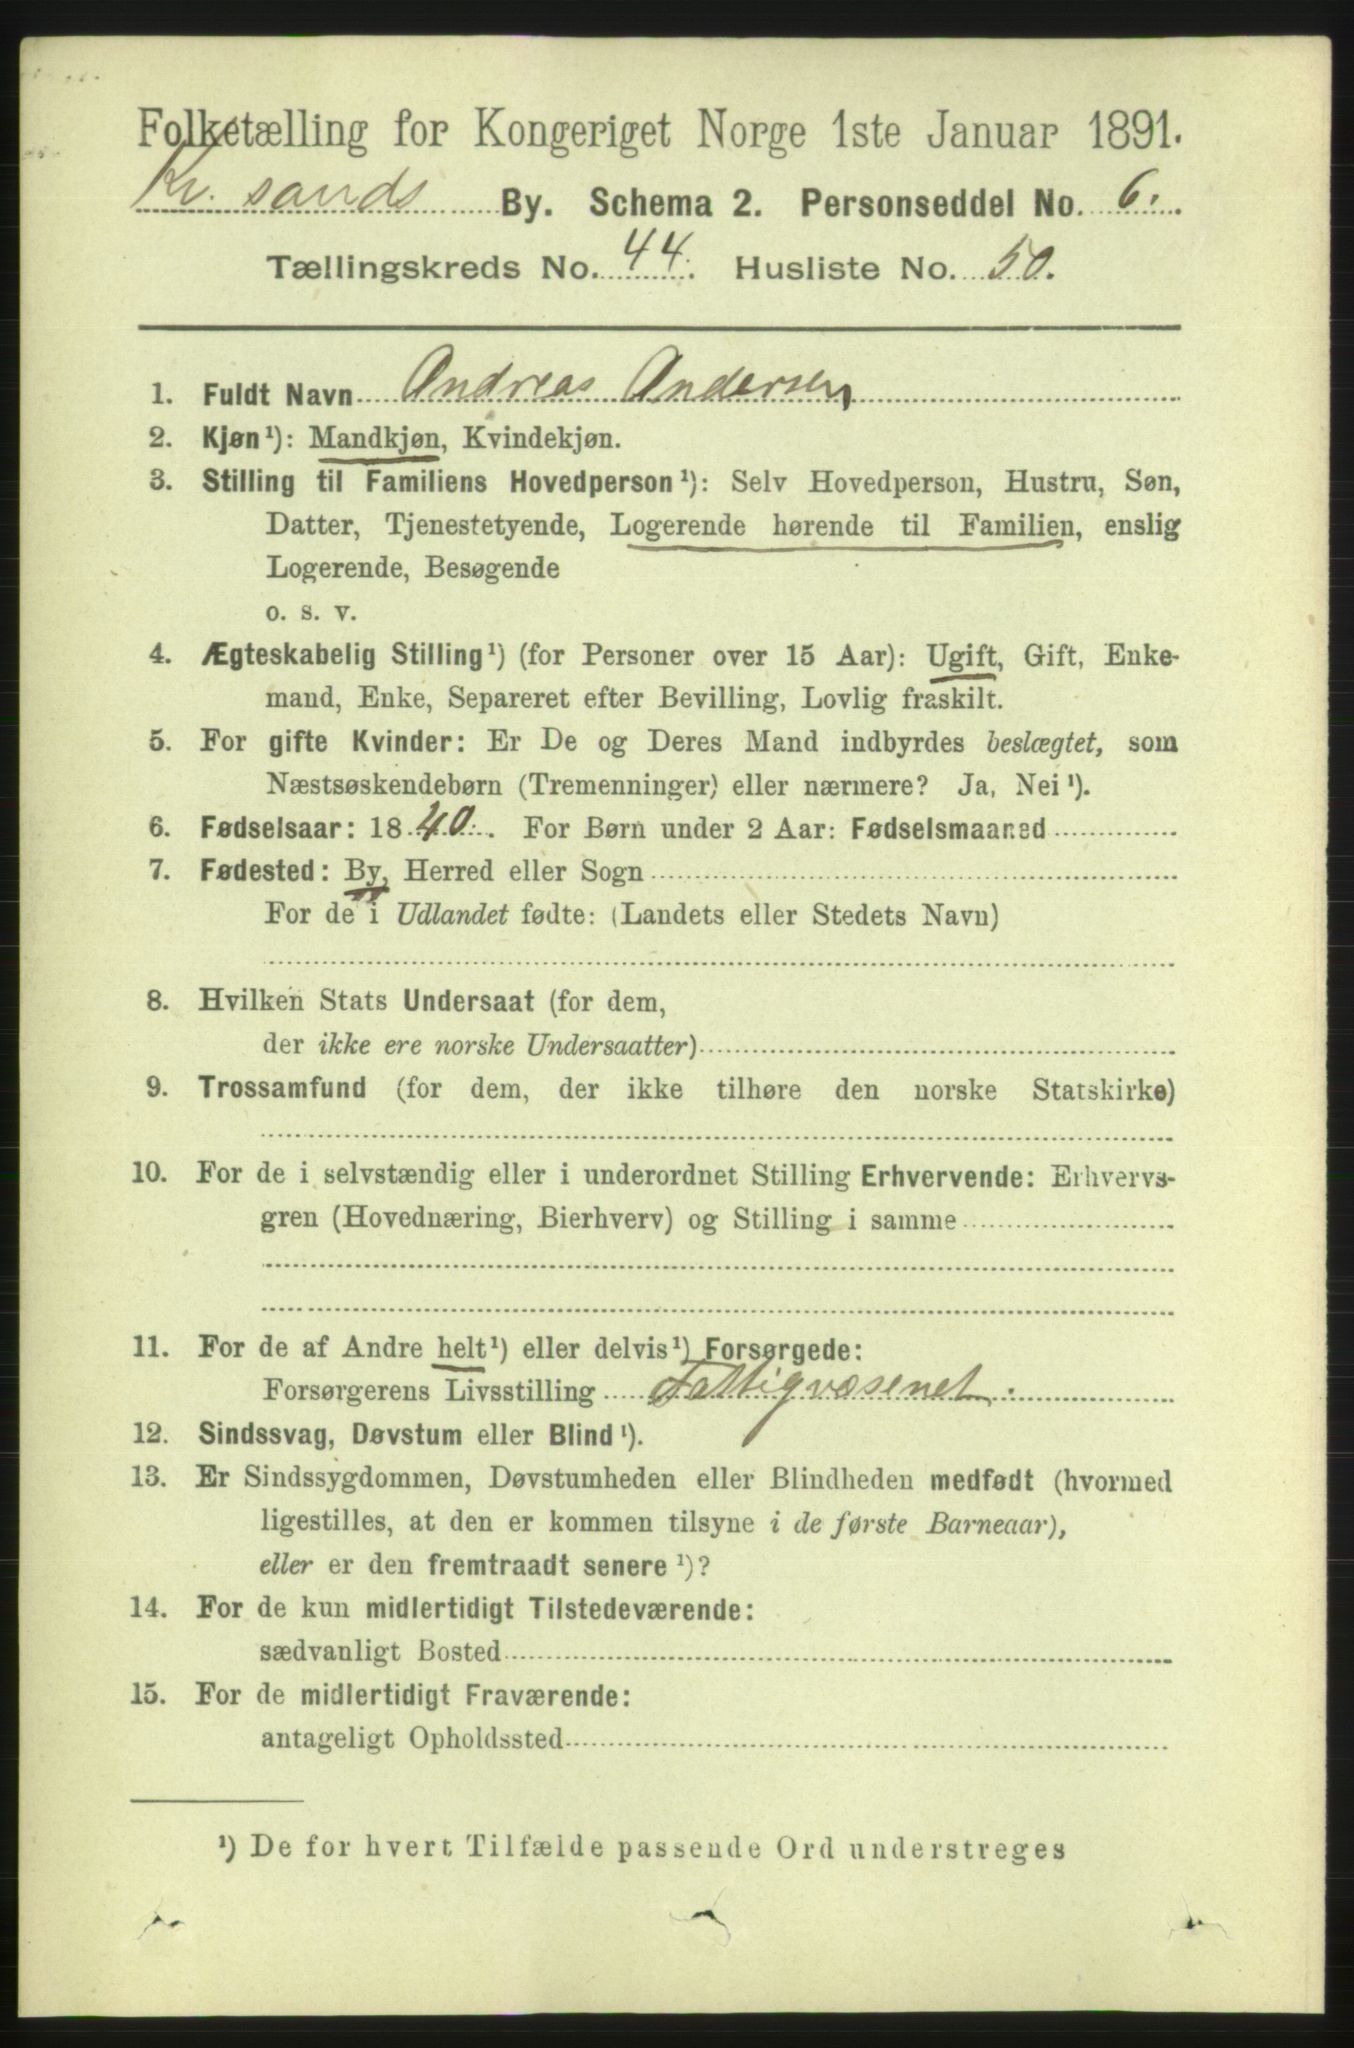 Folketælling for Kongeriget Norge 1ste Januar 1891.
Kr. sands By. Schema 2. Personseddel No. 6.
Tællingskreds No. 44. Husliste No. 50.
1. Fuldt Navn Andreas Andersen
2. Kjøn¹): Mandkjøn, Kvindekjøn.
3. Stilling til Familiens Hovedperson¹): Selv Hovedperson, Hustru, Søn,
Datter, Tjenestetyende, Logerende hørende til Familien, enslig
Logerende, Besøgende
o. s. v.
4. Ægteskabelig Stilling¹) (for Personer over 15 Aar): Ugift, Gift, Enke-
mand, Enke, Separeret efter Bevilling, Lovlig fraskilt.
5. For gifte Kvinder: Er De og Deres Mand indbyrdes beslægtet, som
Næstsøskendebørn (Tremenninger) eller nærmere? Ja, Nei¹).
6. Fødselsaar: 1840. For Børn under 2 Aar: Fødselsmaaned
7. Fødested: By, Herred eller Sogn
For de i Udlandet fødte: (Landets eller Stedets Navn)
8. Hvilken Stats Undersaat (for dem,
der ikke ere norske Undersaatter)
9. Trossamfund (for dem, der ikke tilhøre den norske Statskirke)
10. For de i selvstændig eller i underordnet Stilling Erhvervende: Erhvervs-
gren (Hovednæring, Bierhverv) og Stilling i samme
11. For de af Andre helt¹) eller delvis¹) Forsørgede:
Forsørgerens Livsstilling Fattigvæsenet.
12. Sindssvag, Døvstum eller Blind¹).
13. Er Sindssygdommen, Døvstumheden eller Blindheden medfødt (hvormed
ligestilles, at den er kommen tilsyne i de første Barneaar),
eller er den fremtraadt senere¹)?
14. For de kun midlertidigt Tilstedeværende:
sædvanligt Bosted
15. For de midlertidigt Fraværende:
antageligt Opholdssted
¹) De for hvert Tilfælde passende Ord understreges